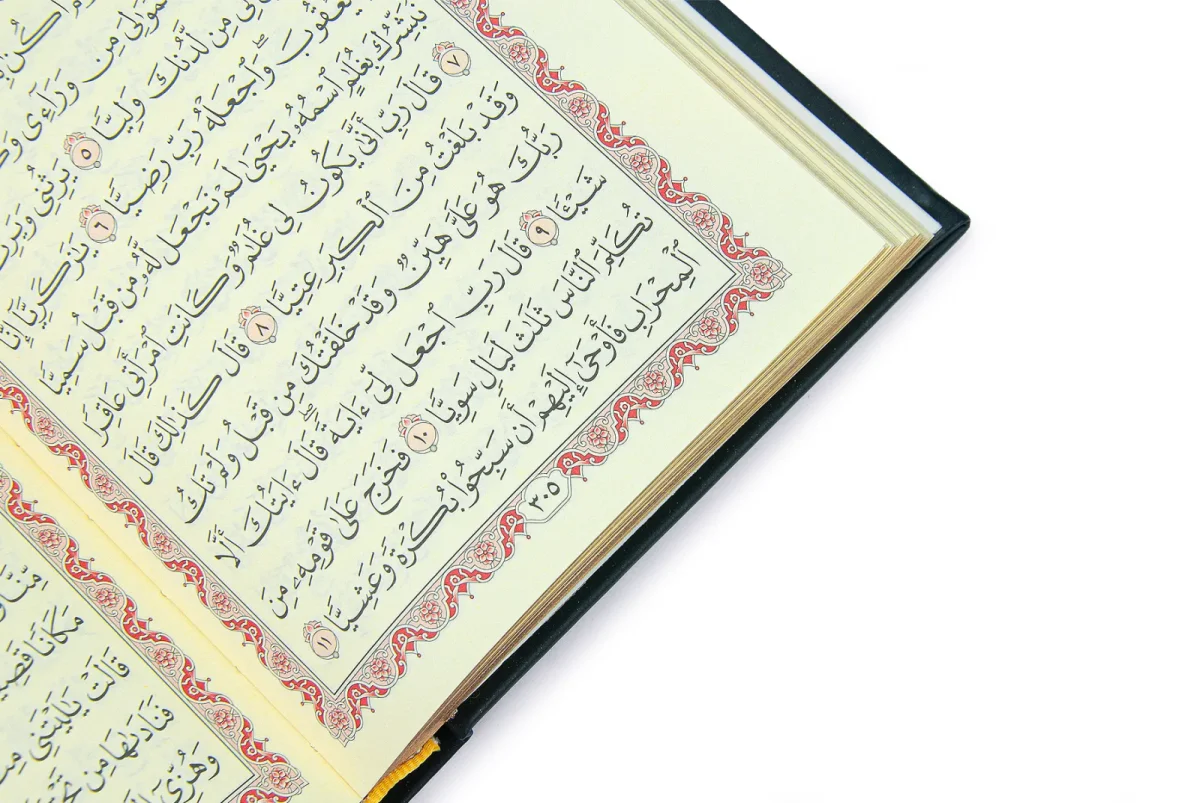 أَكُنۢ
مِن وَرَآءِى
مِن لَّدُنكَ وَلِيًّا ٥ يَرِثُنِى
يَعْقُوبَ وَٱجْعَلْهُ رَبِّ رَضِيًّا ٦ يَٰزَكَرِيَّآ إِنَّا
نُبَشِّرُكَ بِغُلَٰمٍ ٱسْمُهُۥ يَحْيَىٰ لَمْ نَجْعَل لَّهُۥ مِن قَبْلُ سَمِيًّا
٧ قَالَ رَبِّ أَنَّىٰ يَكُونُ لِى غُلَٰمٌ وَكَانَتِ ٱمْرَأَتِى عَاقِرًا
وَقَدْ بَلَغْتُ مِنَ ٱلْكِبَرِ عِتِيًّا ٨ قَالَ كَذَٰلِكَ قَالَ
رَبُّكَ هُوَ عَلَىَّ هَيِّنٌ وَقَدْ خَلَقْتُكَ مِن قَبْلُ وَلَمْ تَكُ
شَيْـًٔا ٩ قَالَ رَبِّ ٱجْعَل لِّىٓ ءَايَةً قَالَ ءَايَتُكَ أَلَّا
تُكَلِّمَ ٱلنَّاسَ ثَلَٰثَ لَيَالٍ سَوِيًّا ١٠ فَخَرَجَ عَلَىٰ قَوْمِهِۦ مِنَ
ٱلْمِحْرَابِ فَأَوْحَىٰٓ إِلَيْهِمْ أَن سَبِّحُوا۟ بُكْرَةً وَعَشِيًّا ١١
٣٠٥
مِّنَّا
مَكَانًا
قَالَتْ يَٰلَيْتَنِى
فَنَادَىٰهَا مِن
وَهُزِّىٓ